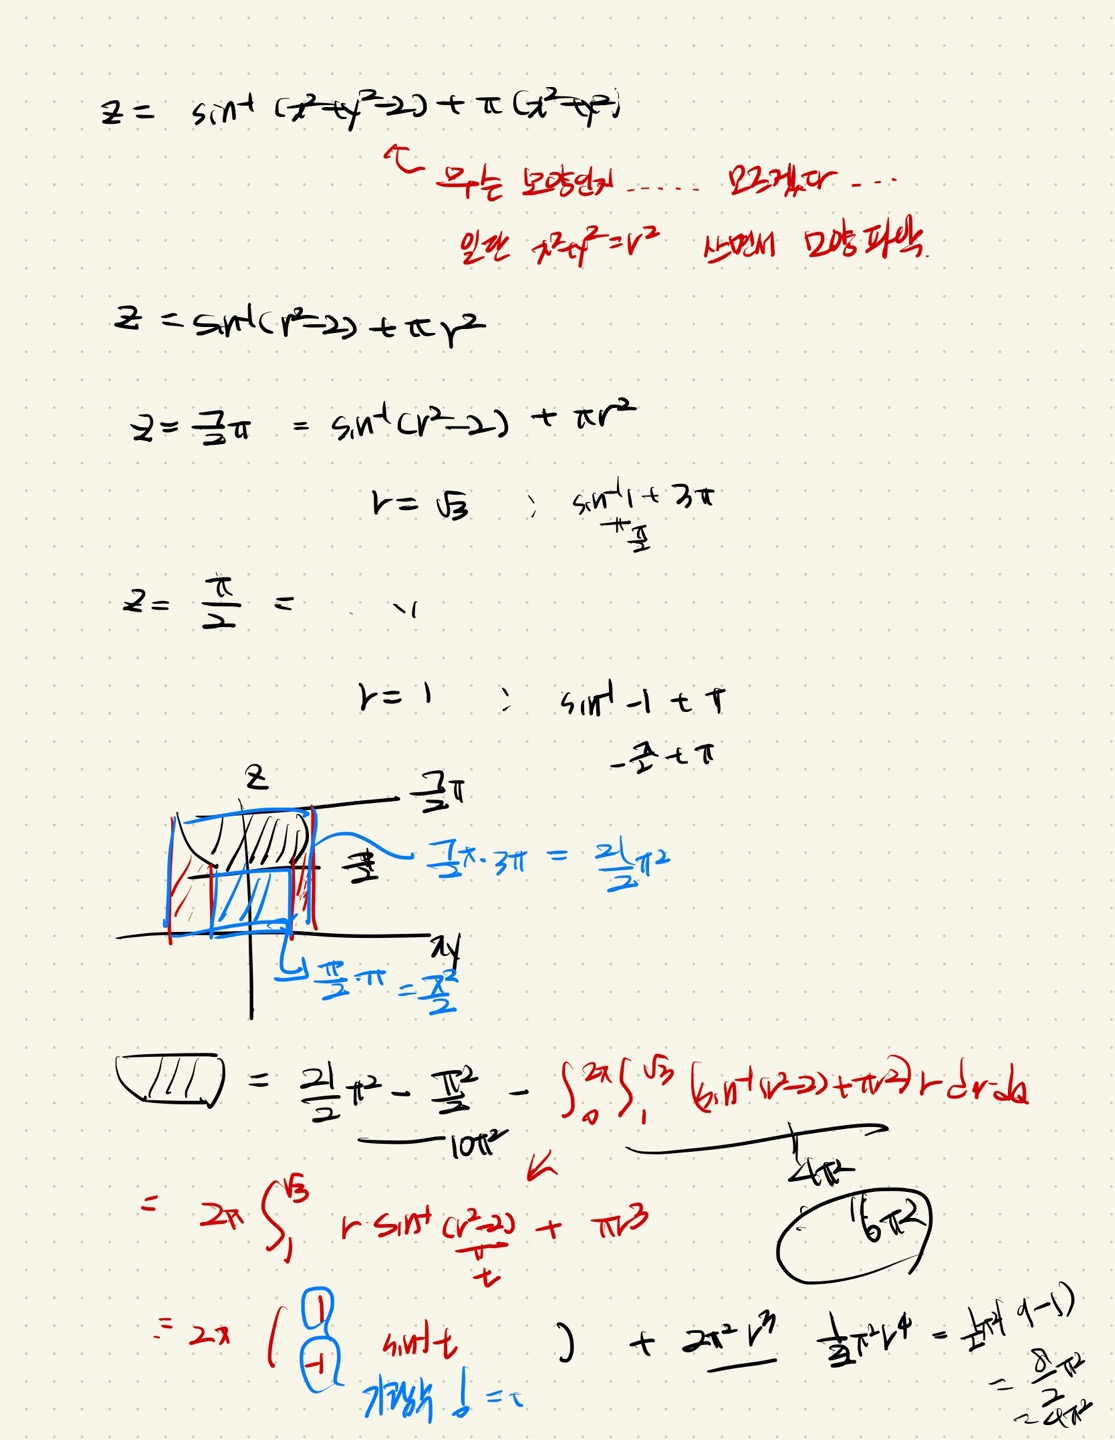 z = sin⁻¹ (x²+y²-2) + π (x²+y²)
무슨 모양인지 ...... 모르겠다 ...
일단 x²+y²=r² 쓰면서 모양 파악.
z = sin⁻¹(r²-2) + πr²
z = 7/2 π = sin⁻¹(r²-2) + πr²
r = √3 ; sin⁻¹1 + 3π
π/2
z = π/2 = 〃
r = 1 ; sin⁻¹ -1 + π
-π/2 + π
z
7/2 π
π/2
7/2 π · 3π = 21/2 π²
xy
π/2 · π = π²/2
= 21/2 π² - π²/2 - ∫₀^2π ∫₁^√3 (sin⁻¹(r²-2)+πr²) r dr dθ
10π²
4π²
= 2π ∫₁^√3 r · sin⁻¹ (r²-2) + πr³
t
6π²
= 2π ( 1 -1 sin⁻¹t ) + 2π² r³ 1/2 π² r⁴ = 1/2 π² (9-1)
= 8/2 π²
= 4π²
기함수 ! = 0